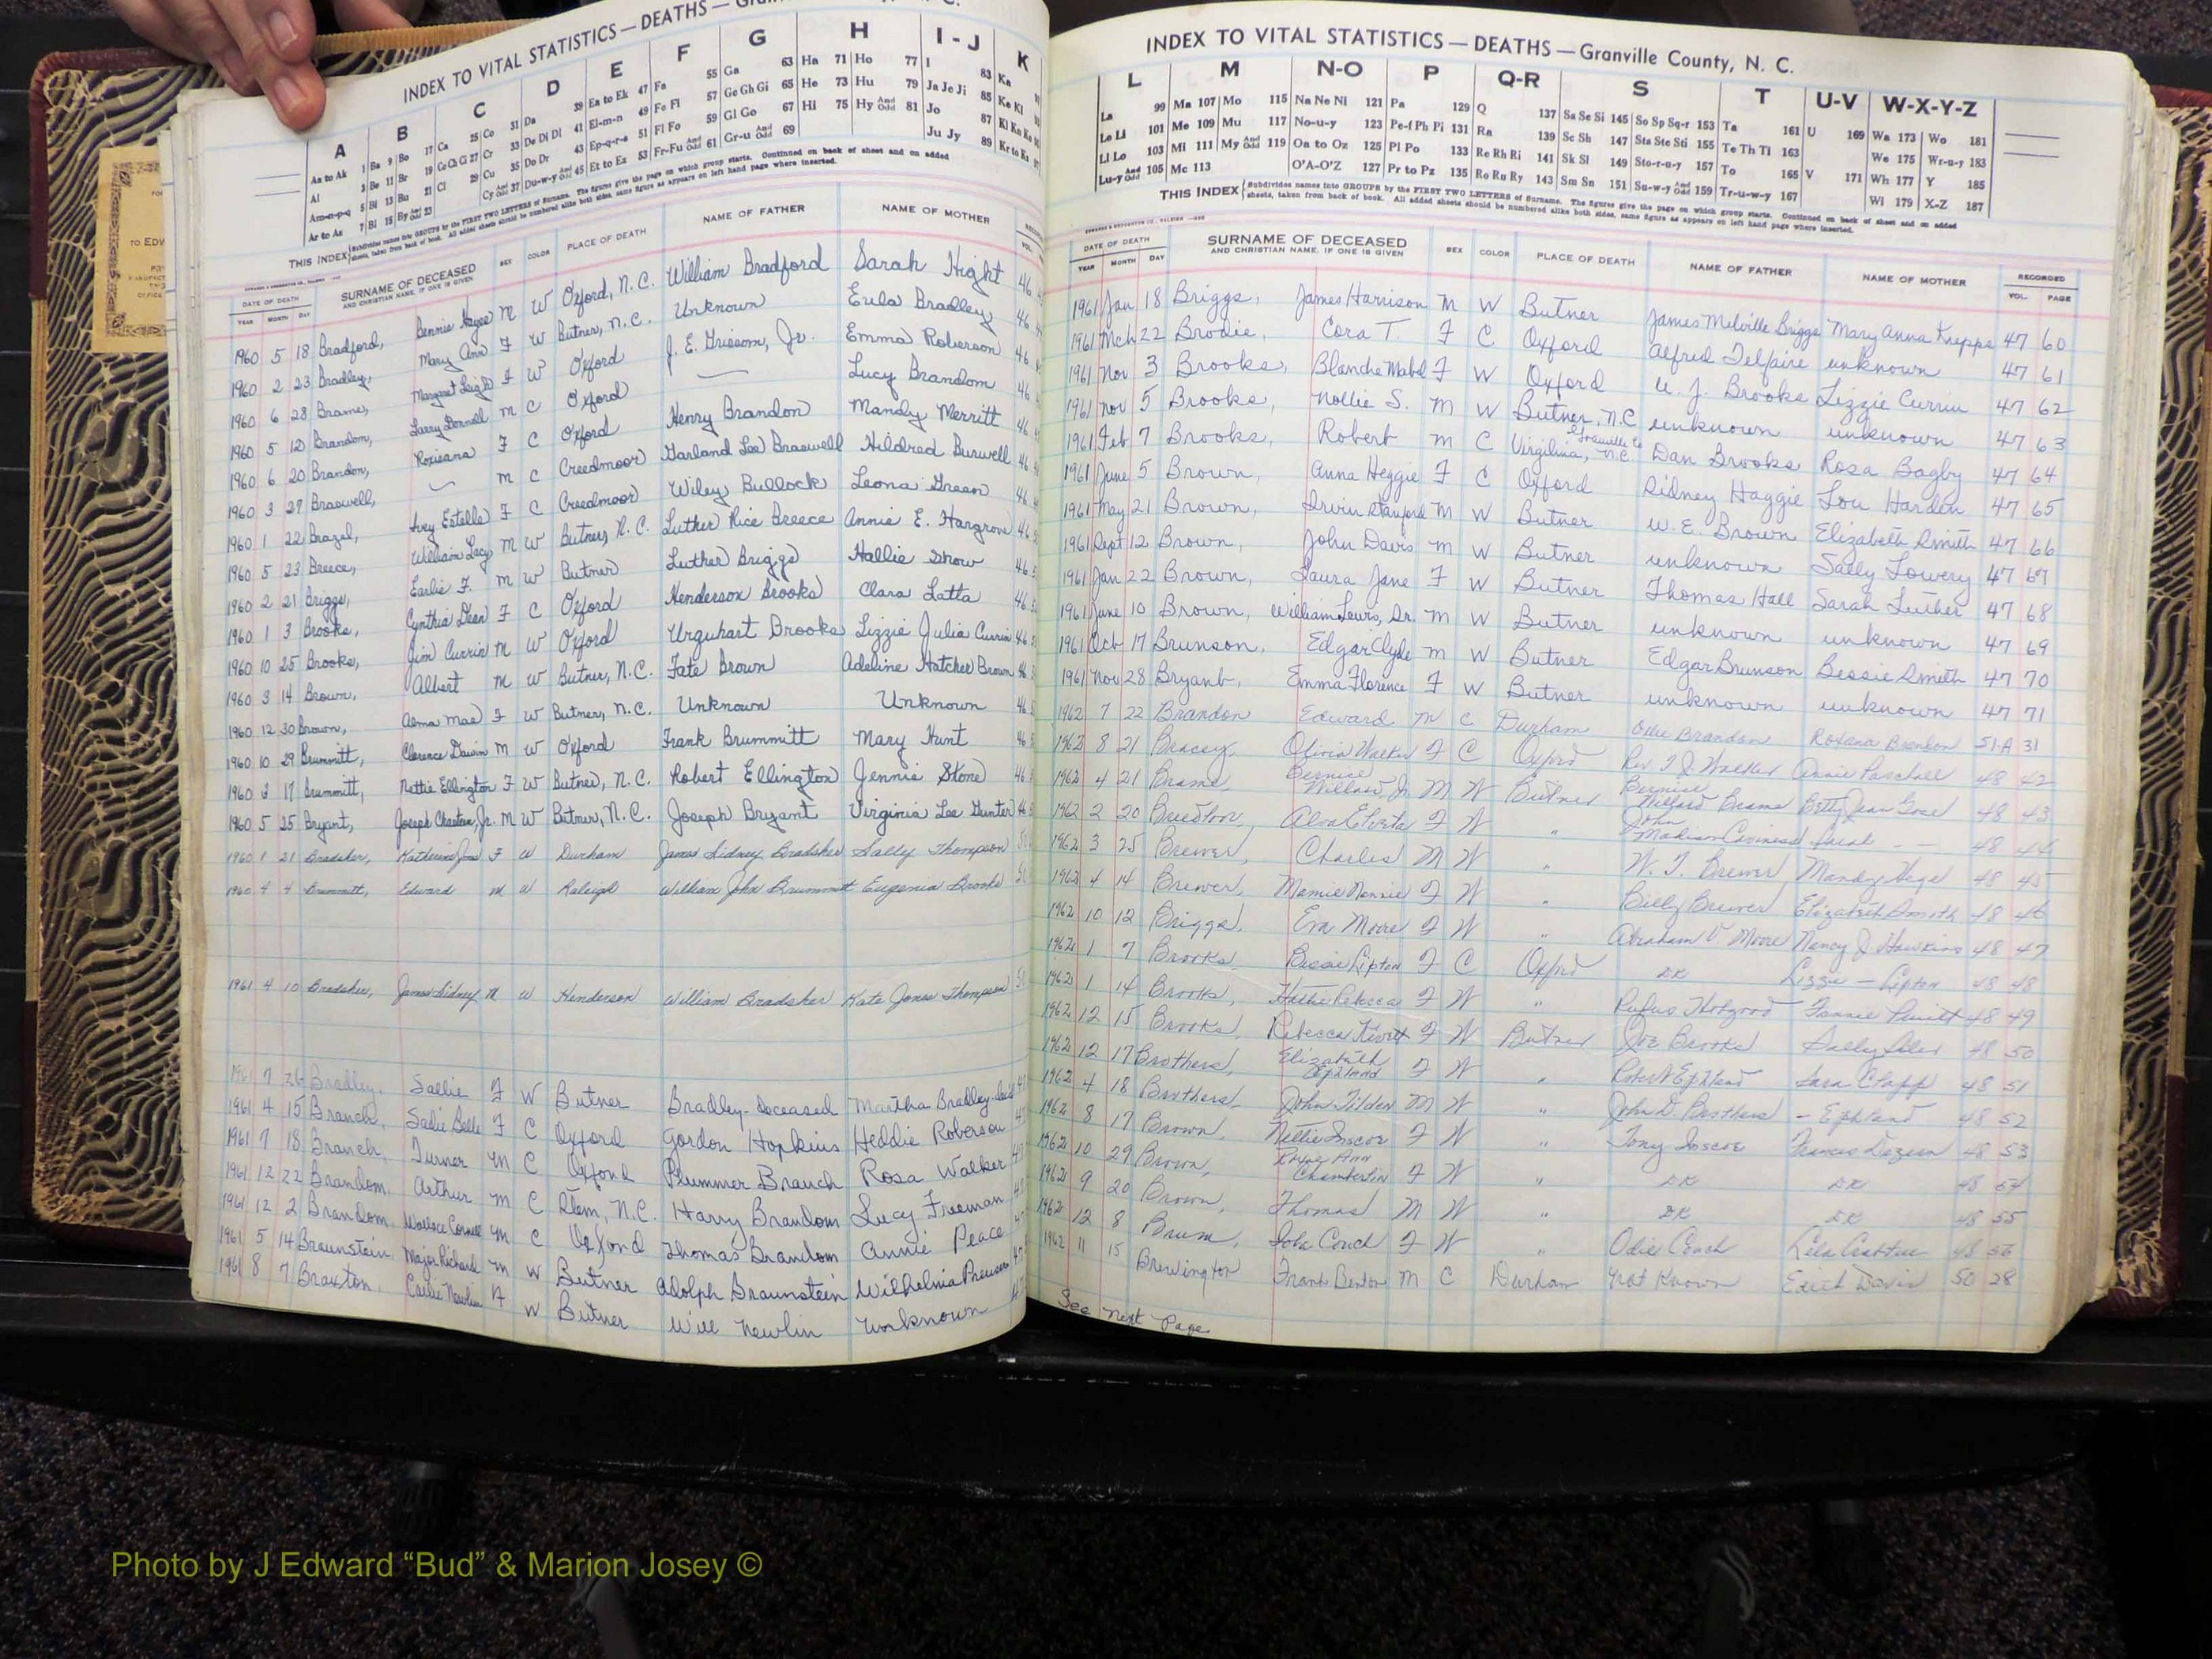 INDEX TO VITAL STATISTICS — DEATHS —
A B C D E F G H I - J K
THIS INDEX
DATE OF DEATH SURNAME OF DECEASED SEX COLOR PLACE OF DEATH NAME OF FATHER NAME OF MOTHER
YEAR MONTH DAY AND CHRISTIAN NAME, IF ONE IS GIVEN
1960 5 18 Bradford, Bennie M W Oxford, N.C. William Bradford Sarah Hight 46
1960 2 23 Bradley, Mary Ann F W Butner, N.C. Unknown Eula Bradley 46
1960 6 28 Brame, Margaret Leigh F W Oxford J. E. Grissom, Jr. Emma Roberson 46
1960 5 12 Brandom, Larry Donnell M C Oxford — Lucy Brandom 46
1960 6 20 Brandon, Roxieana F C Oxford Henry Brandon Mandy Merritt 46
1960 3 27 Braswell, — M C Creedmoor Garland Lee Braswell Hildred Burwell 46
1960 1 22 Brazel, Ivey Estelle F C Creedmoor Wiley Bullock Leona Green 46
1960 5 23 Breece, William Lacy M W Butner, N.C. Luther Rice Breece Annie E. Hargrove 46
1960 2 21 Briggs, Earlie F. M W Butner Luther Briggs Hallie Snow 46
1960 1 3 Brooks, Cynthia Dean F C Oxford Henderson Brooks Clara Latta 46
1960 10 25 Brooks, Jim Currin M W Oxford Urquhart Brooks Lizzie Julia Currin 46
1960 3 14 Brown, Albert M W Butner, N.C. Fate Brown Adeline Hatcher Brown 46
1960 12 30 Brown, Alma Mae F W Butner, N.C. Unknown Unknown 46
1960 10 29 Brummitt, Clarence Dawin M W Oxford Frank Brummitt Mary Hunt 46
1960 3 17 Brummitt, Nettie Ellington F W Butner, N.C. Robert Ellington Jennie Stone 46
1960 5 25 Bryant, Joseph Chasteen, Jr. M W Butner, N.C. Joseph Bryant Virginia Lee Gunter 46
1960 1 21 Bradsher, Katherine Jones F W Durham James Sidney Bradsher Sally Thompson
1960 4 4 Brummitt, Edward M W Raleigh William John Brummitt Eugenia Brooks
1961 4 10 Bradsher, James Sidney M W Henderson William Bradsher Kate Jones Thompson
1961 7 26 Bradley, Sallie F W Butner Bradley-Deceased Martha Bradley
1961 4 15 Branch, Sadie Belle F C Oxford Gordon Hopkins Heddie Roberson
1961 7 18 Branch, Turner M C Oxford Plummer Branch Rosa Walker
1961 12 22 Brandom, Arthur M C Stem, N.C. Harry Brandom Lucy Freeman
1961 12 2 Brandom, Wallace Cornell M C Oxford Thomas Brandom Annie Peace
1961 5 14 Braunstein, Major Richard M W Butner Adolph Braunstein Wilhelmia
1961 8 7 Braxton, Carlie Newlin W Butner Will Newlin unknown
INDEX TO VITAL STATISTICS — DEATHS — Granville County, N. C.
L M N-O P Q-R S T U-V W-X-Y-Z
La 99 Ma 107 Mo 115 Na Ne Ni 121 Pa 129 Q 137 Sa Se Si 145 So Sp Sq-r 153 Ta 161 U 169 Wa 173 Wo 181
Le Li 101 Me 109 Mu 117 No-u-y 123 Pe-f Ph Pi 131 Ra 139 Sc Sh 147 Sta Ste Sti 155 Te Th Ti 163 We 175 Wr-u-y 183
Ll Lo 103 Mi 111 My And Odd 119 Oa to Oz 125 Pl Po 133 Re Rh Ri 141 Sk Sl 149 Sto-r-u-y 157 To 165 V 171 Wh 177 Y 185
Lu-y And Odd 105 Mc 113 O'A-O'Z 127 Pr to Pz 135 Ro Ru Ry 143 Sm Sn 151 Su-w-y And Odd 159 Tr-u-w-y 167 Wi 179 X-Z 187
THIS INDEX Subdivides names into GROUPS by the FIRST TWO LETTERS of Surname. The figures give the page on which group starts. Continued on back of sheet and on added
sheets, taken from back of book. All added sheets should be numbered alike both sides, same figure as appears on left hand page where inserted.
DATE OF DEATH SURNAME OF DECEASED SEX COLOR PLACE OF DEATH NAME OF FATHER NAME OF MOTHER RECORDED
YEAR MONTH DAY AND CHRISTIAN NAME, IF ONE IS GIVEN VOL. PAGE
1961 Jan 18 Briggs, James Harrison M W Butner James Melville Briggs Mary Anna Knepps 47 60
1961 Mch 22 Brodie, Cora T. F C Oxford Alfred Telfaire unknown 47 61
1961 Nov 3 Brooks, Blanche Mabel F W Oxford U. J. Brooks Lizzie Currin 47 62
1961 Nov 5 Brooks, Nollie S. M W Butner, N.C. unknown unknown 47 63
1961 Feb 7 Brooks, Robert M C Virgilina, Granville Co N.C. Dan Brooks Rosa Bagby 47 64
1961 June 5 Brown, Anna Heggie F C Oxford Sidney Haggie Lou Harden 47 65
1961 May 21 Brown, Irvin Stanford M W Butner W. E. Brown Elizabeth Smith 47 66
1961 Sept 12 Brown, John Davis M W Butner unknown Sally Lowery 47 67
1961 Jan 22 Brown, Laura Jane F W Butner Thomas Hall Sarah Luther 47 68
1961 June 10 Brown, William Lewis, Sr. M W Butner unknown unknown 47 69
1961 Oct 17 Brunson, Edgar Clyde M W Butner Edgar Brunson Bessie Smith 47 70
1961 Nov 28 Bryant, Emma Florence F W Butner unknown unknown 47 71
1962 7 22 Brandon Edward M C Durham Odie Brandon Roxana Brandon 51-A 31
1962 8 21 Bracey, Olivia Walker F C Oxford Rev. T J Walker Annie Paschall 48 42
1962 4 21 Brame, Bernice Willard Jr M W Butner Bernice Willard Brame Betty Jean 48 43
1962 2 20 Breedlove, Alva F W " John Madison Sarah - - 48 44
1962 3 25 Brewer, Charles M W " W. T. Brewer Mandy 48 45
1962 4 14 Brewer, Mamie Nannie F W " Billy Brewer Elizabeth Smith 48 46
1962 10 12 Briggs, Eva Moore F W " Abraham V Moore Nancy J. Hawkins 48 47
1962 1 7 Brooks, Bessie Lipton F C Oxford DK Lizzie — Lipton 48 48
1962 1 14 Brooks, Hattie Rebecca F W " Rufus Hobgood Fannie 48 49
1962 12 15 Brooks, Rebecca F W Butner Joe Brooks Sally 48 50
1962 12 17 Brothers, Elizabeth Ephland F W " Robert Ephland Sara Clapp 48 51
1962 4 18 Brothers, John Tilden M W " John D. Brothers - Ephland 48 52
1962 8 17 Brown, Nettie Inscoe F W " Tony Inscoe Frances 48 53
1962 10 29 Brown, Ann Chamberlin F W " DK DK 48 54
1962 9 20 Brown, Thomas M W " DK DK 48 55
1962 12 8 Brum, Iola Couch F W " Odie Couch Lela Crabtree 48 56
1962 11 15 Brewington Frank Benton M C Durham Not Known Edith Davis 50 28
See Next Page
Photo by J Edward “Bud” & Marion Josey ©